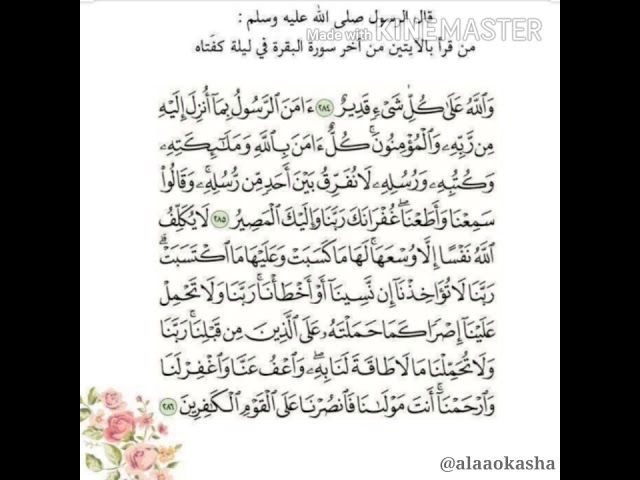 قال الرسول صلى الله عليه وسلم :
Made with KINEMASTER
من قرأ بالايتين من أخر سورة البقرة في ليلة كفتاه
وَاللَّهُ عَلَىٰ كُلِّ شَىْءٍ قَدِيرٌ ٢٨٤ ءَامَنَ الرَّسُولُ بِمَآ أُنزِلَ إِلَيْهِ
مِن رَّبِّهِۦ وَالْمُؤْمِنُونَۚ كُلٌّ ءَامَنَ بِاللَّهِ وَمَلَٰٓئِكَتِهِۦ
وَكُتُبِهِۦ وَرُسُلِهِۦ لَا نُفَرِّقُ بَيْنَ أَحَدٍ مِّن رُّسُلِهِۦۚ وَقَالُوا۟
سَمِعْنَا وَأَطَعْنَاۖ غُفْرَانَكَ رَبَّنَا وَإِلَيْكَ الْمَصِيرُ ٢٨٥ لَا يُكَلِّفُ
اللَّهُ نَفْسًا إِلَّا وُسْعَهَاۚ لَهَا مَا كَسَبَتْ وَعَلَيْهَا مَا اكْتَسَبَتْۗ
رَبَّنَا لَا تُؤَاخِذْنَآ إِن نَّسِينَآ أَوْ أَخْطَأْنَاۚ رَبَّنَا وَلَا تَحْمِلْ
عَلَيْنَآ إِصْرًا كَمَا حَمَلْتَهُۥ عَلَى الَّذِينَ مِن قَبْلِنَاۚ رَبَّنَا
وَلَا تُحَمِّلْنَا مَا لَا طَاقَةَ لَنَا بِهِۦۖ وَاعْفُ عَنَّا وَاغْفِرْ لَنَا
وَارْحَمْنَآۚ أَنتَ مَوْلَىٰنَا فَانصُرْنَا عَلَى الْقَوْمِ الْكَٰفِرِينَ ٢٨٦
@alaaokasha